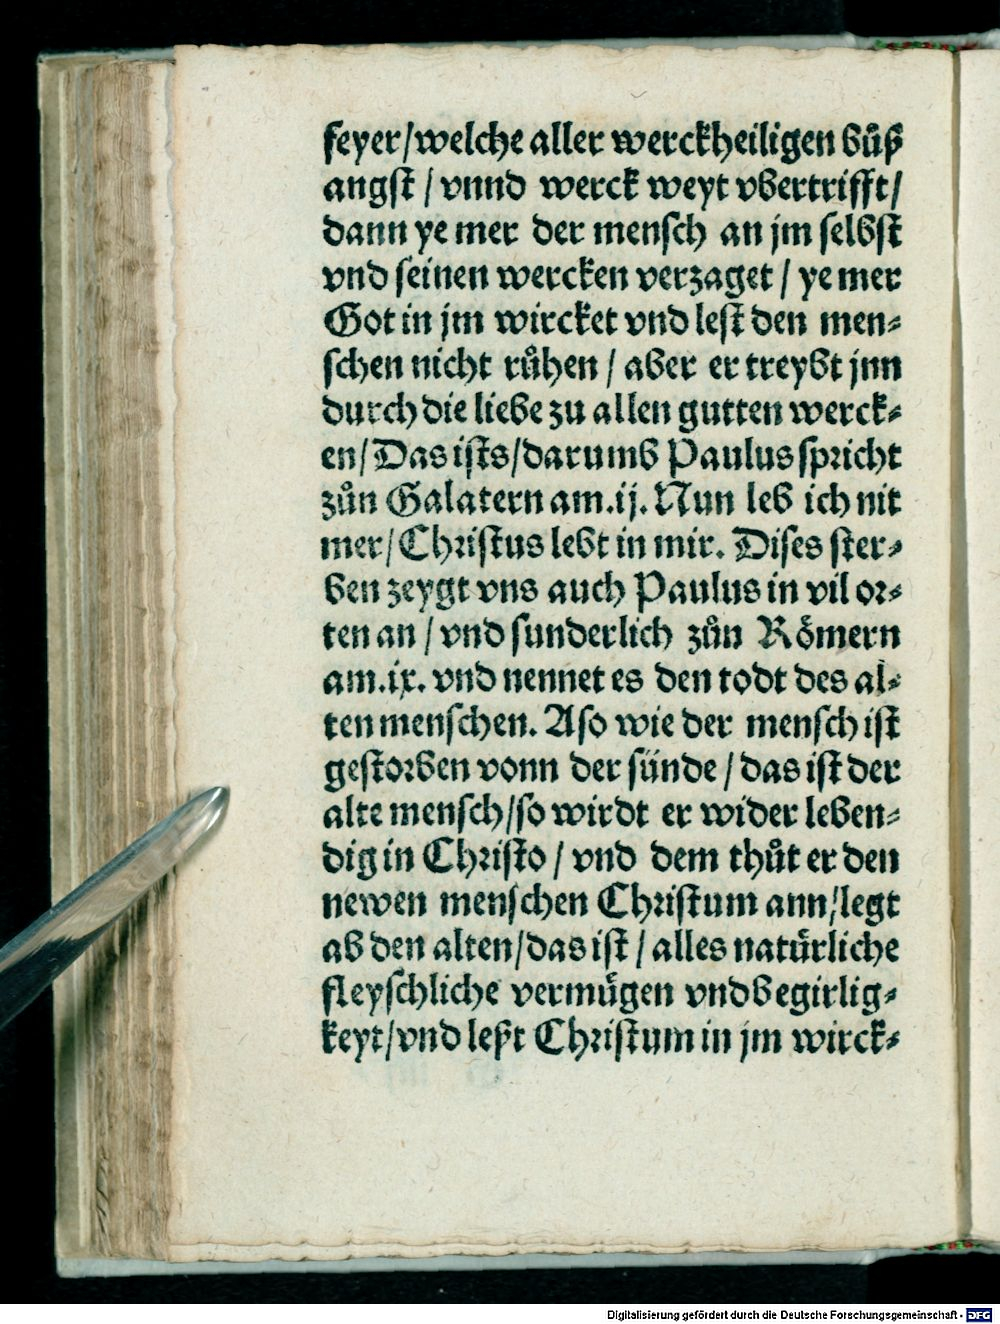 feyer/welche aller werckheiligen bůß
angst / vnnd werck weyt vbertrifft/
dann ye mer der mensch an jm selbst
vnd seinen wercken verzaget / ye mer
Got in jm wircket vnd lest den men⸗
schen nicht růhen / aber er treybt jnn
durch die liebe zu allen gutten werck⸗
en/Das ists/darumb Paulus spricht
zůn Galatern am.ij. Nun leb ich nit
mer/Christus lebt in mir. Dises ster⸗
ben zeygt vns auch Paulus in vil or⸗
ten an / vnd sunderlich zůn Römern
am.ix. vnd nennet es den todt des al⸗
ten menschen. Aso wie der mensch ist
gestorben vonn der sünde / das ist der
alte mensch/so wirdt er wider leben⸗
dig in Christo / vnd dem thůt er den
newen menschen Christum ann/legt
ab den alten/das ist / alles natürliche
fleyschliche vermügen vnd begirlig⸗
keyt/vnd leßt Christum in jm wirck⸗
Digitalisierung gefördert durch die Deutsche Forschungsgemeinschaft - DFG